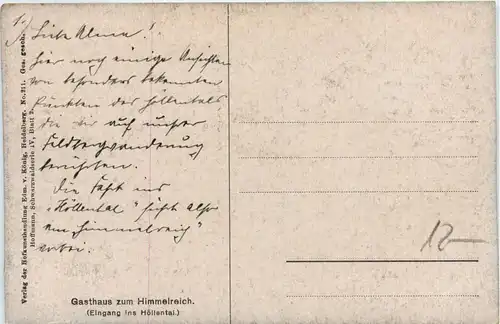 1.)
Liebe Alma!
Hier noch einige Ansichten
von besonders bekannten
Punkten des Höllentals
die wir auf unserer
Feldbergwanderung
berührten.
Die Fahrt ins
"Höllental" führt also
am "Himmelreich"
vorbei.
12-
Gasthaus zum Himmelreich.
(Eingang ins Höllental.)
Verlag der Hofkunsthandlung Edm. v. König, Heidelberg. No. 311. Ges. gesch.
Hoffmann, Schwarzwaldserie IV, Blatt